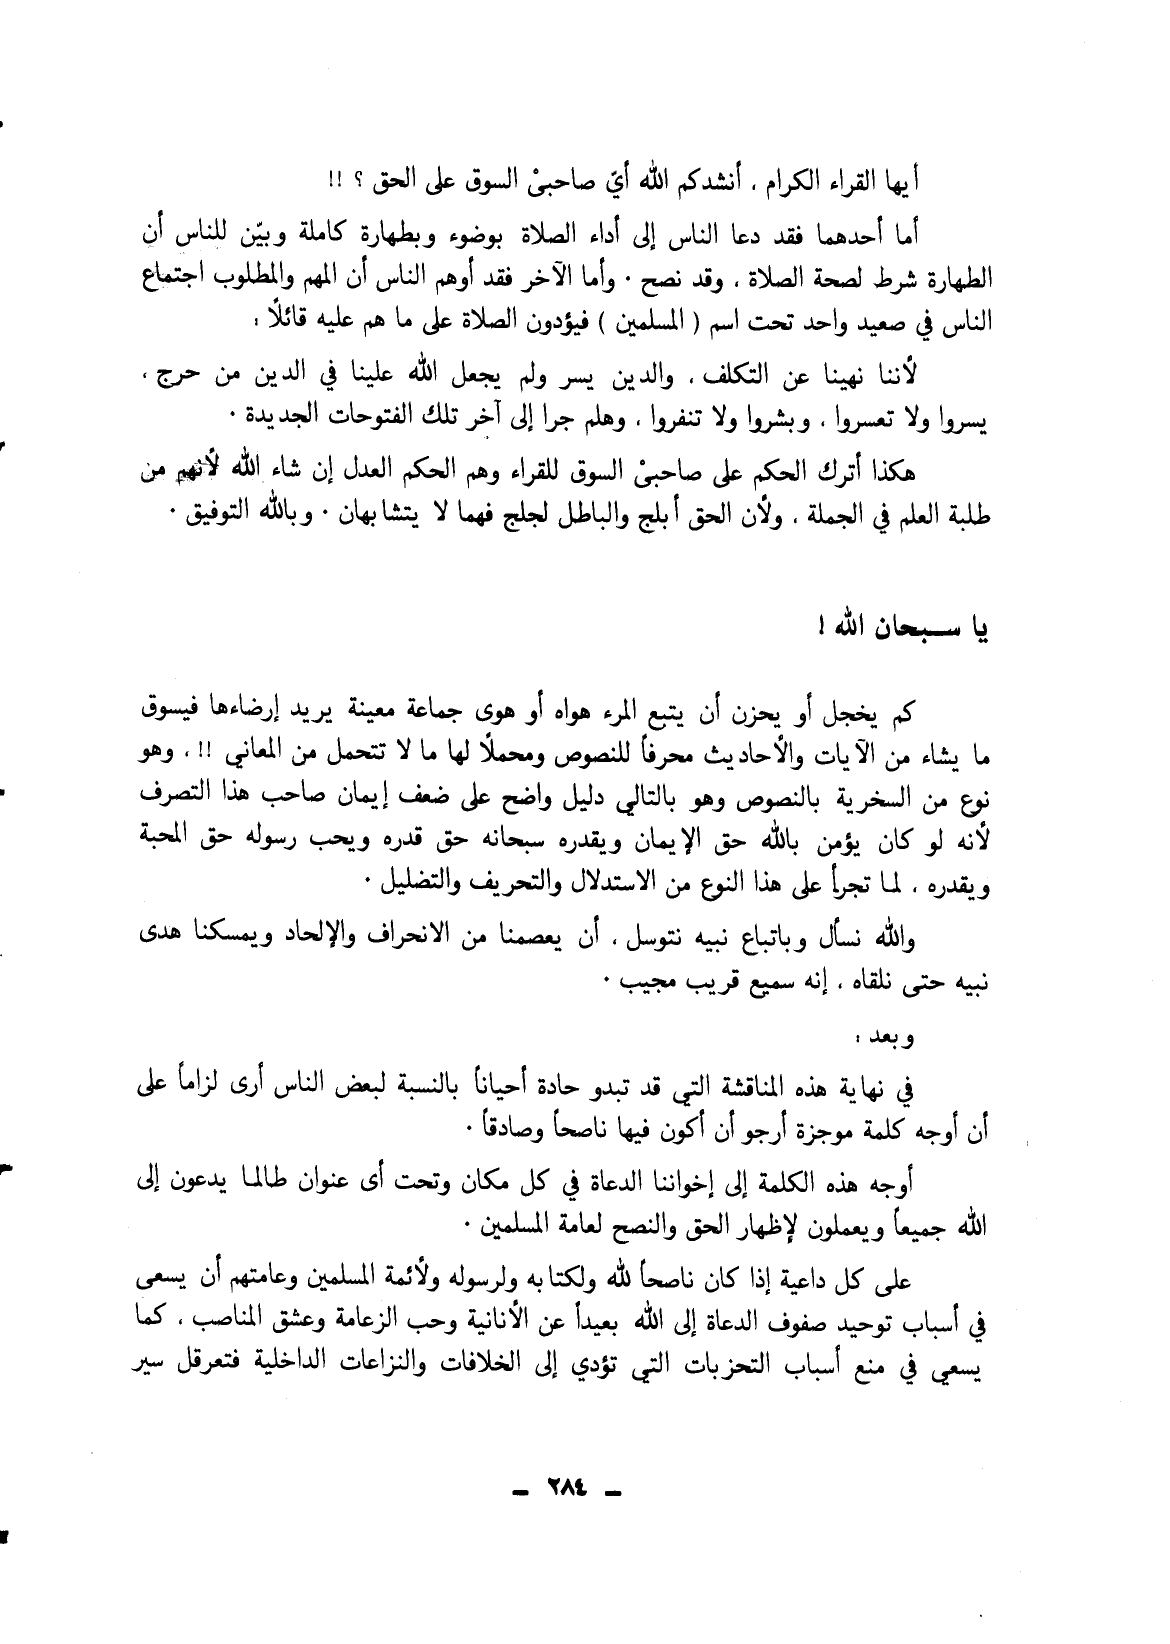 أيها القراء الكرام ، أنشدكم الله أيّ صاحبيْ السوق على الحق ؟ !!
أما أحدهما فقد دعا الناس إلى أداء الصلاة بوضوء وبطهارة كاملة وبيّن للناس أن
الطهارة شرط لصحة الصلاة ، وقد نصح . وأما الآخر فقد أوهم الناس أن المهم والمطلوب اجتماع
الناس في صعيد واحد تحت اسم ( المسلمين ) فيؤدون الصلاة على ما هم عليه قائلاً :
لأننا نهينا عن التكلف ، والدين يسر ولم يجعل الله علينا في الدين من حرج ،
يسروا ولا تعسروا ، وبشروا ولا تنفروا ، وهلم جرا إلى آخر تلك الفتوحات الجديدة .
هكذا أترك الحكم على صاحبيْ السوق للقراء وهم الحكم العدل إن شاء الله لأنهم من
طلبة العلم في الجملة ، ولأن الحق أبلج والباطل لجلج فهما لا يتشابهان . وبالله التوفيق .
يا سـبحان الله !
كم يخجل أو يحزن أن يتبع المرء هواه أو هوى جماعة معينة يريد إرضاءها فيسوق
ما يشاء من الآيات والأحاديث محرفاً للنصوص ومحملاً لها ما لا تتحمل من المعاني !! ، وهو
نوع من السخرية بالنصوص وهو بالتالي دليل واضح على ضعف إيمان صاحب هذا التصرف
لأنه لو كان يؤمن بالله حق الإيمان ويقدره سبحانه حق قدره ويحب رسوله حق المحبة
ويقدره ، لما تجرأ على هذا النوع من الاستدلال والتحريف والتضليل .
والله نسأل وباتباع نبيه نتوسل ، أن يعصمنا من الانحراف والإلحاد ويمسكنا هدى
نبيه حتى نلقاه ، إنه سميع قريب مجيب .
وبعد :
في نهاية هذه المناقشة التي قد تبدو حادة أحياناً بالنسبة لبعض الناس أرى لزاماً على
أن أوجه كلمة موجزة أرجو أن أكون فيها ناصحاً وصادقاً .
أوجه هذه الكلمة إلى إخواننا الدعاة في كل مكان وتحت أى عنوان طالما يدعون إلى
الله جميعاً ويعملون لإظهار الحق والنصح لعامة المسلمين .
على كل داعية إذا كان ناصحاً لله ولكتابه ولرسوله ولأئمة المسلمين وعامتهم أن يسعى
في أسباب توحيد صفوف الدعاة إلى الله بعيداً عن الأنانية وحب الزعامة وعشق المناصب ، كما
يسعى في منع أسباب التحزبات التي تؤدي إلى الخلافات والنزاعات الداخلية فتعرقل سير
ـ ٢٨٤ ـ